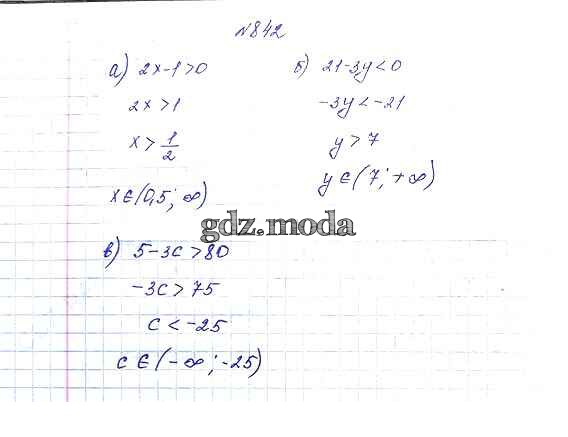 №842
а) 2x-1>0
2x>1
x>1/2
x∈(0,5; ∞)
б) 21-3y<0
-3y<-21
y>7
y∈(7; +∞)
gdz.moda
в) 5-3c>80
-3c>75
c<-25
c∈(-∞; -25)